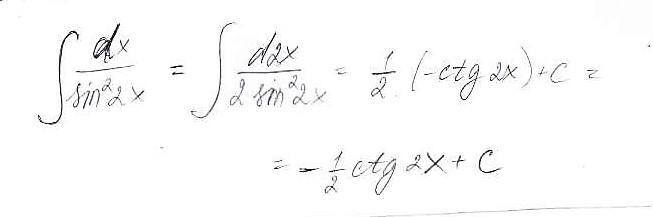 ∫ dx / sin²2x = ∫ d2x / 2 sin²2x = 1/2 (-ctg 2x) + C =
= - 1/2 ctg 2x + C